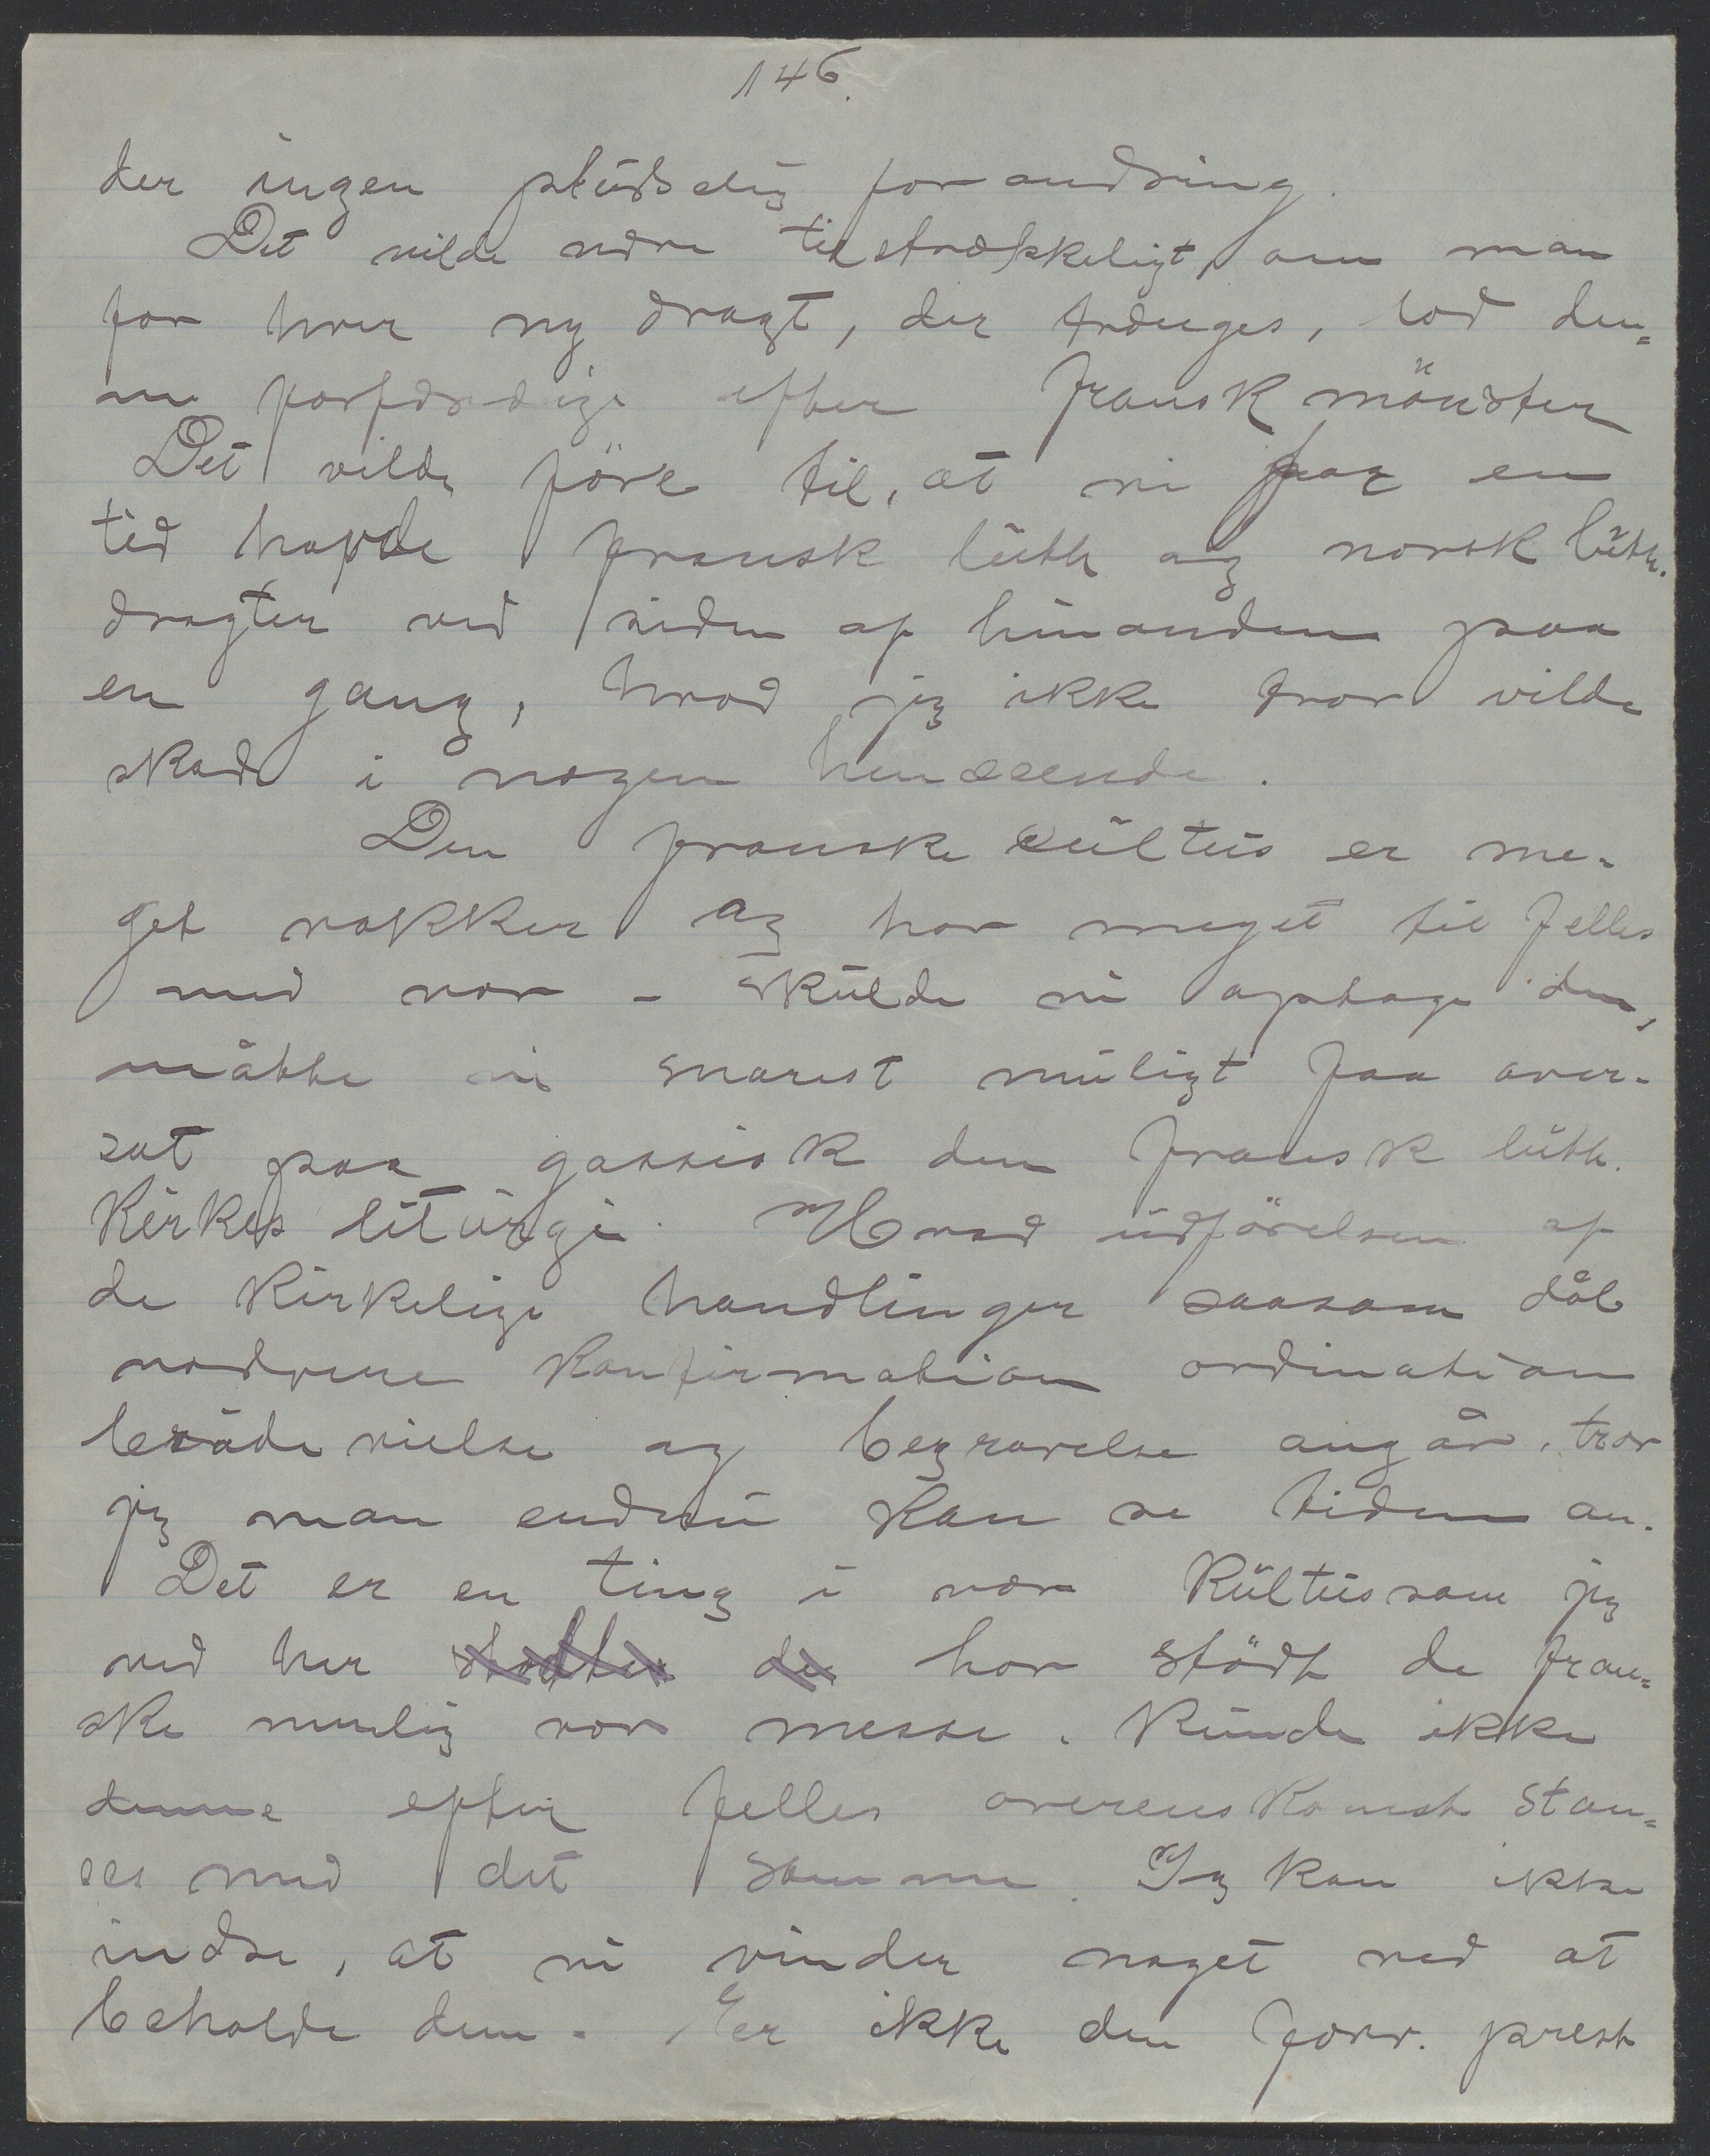 146.
der ingen plüdselig forandring.
Det vilde være tilstrækkeligt, om man
for hver ny dragt, der trænges, lod den=
ne forfærdige efter fransk mönster
Det vilde före til, at vi for en
tid havde fransk lüth og norsk lüth.
dragter ved siden af hinanden paa
en gang, hvad jeg ikke tror vilde
skade i nogen henseende.
Den franske cültüs er me-
get vakker og har meget til felles
med vor - skülde vi optage den,
måtte vi snarest müligt faa over-
sat paa gassisk den fransk lüth.
Kirkes litürgi. Hvad üdförelsen af
de kirkelige handlinger saasom dåb
nadvere konfirmation ordination
bryllup vielse og begravelse angår, tror
jeg man endnü kan se tiden an.
Det er en ting i vor Kültüs som jeg
ved her har stödt de fran=
ske nemlig vor messe. Künde ikke
denne efter felles overenskomst stan=
ses med det samme. Jeg kan ikke
indse, at vi vinder noget ved at
beholde den. Er ikke den forr. prest